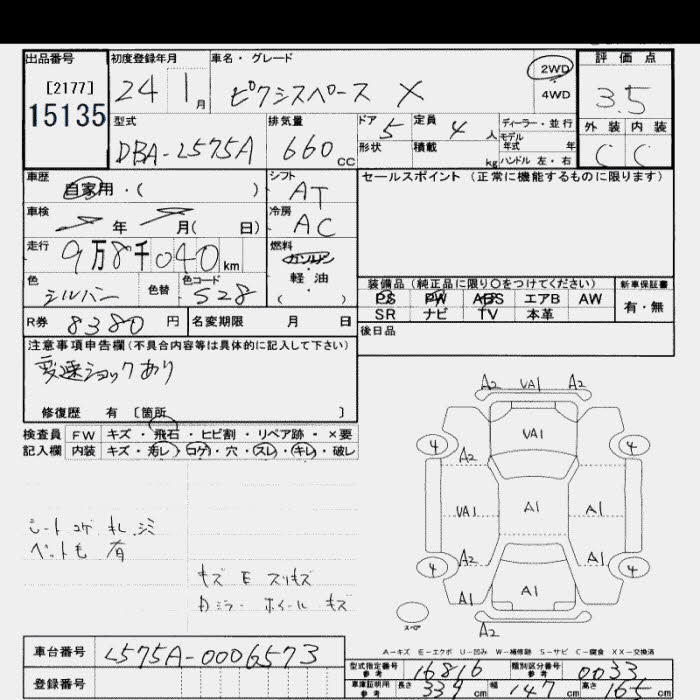 出品番号 初度登録年月 車名・グレード 2WD 評価点
[2177] 24 1月 ピクシスペース X 4WD 3.5
15135 型式 排気量 ドア 5 定員 4人 ディーラー・並行 外装 内装
DBA-L575A 660cc 形状 積載 kg モデル年式 年 C C
ハンドル 左・右
車歴 シフト セールスポイント (正常に機能するものに限ります)
自家用・( ) AT
車検 年 月( 日) 冷房 AC
走行 9万8千040km 燃料 ガソリン
軽油
( )
色 シルバー 色替 色コード S28
装備品 (純正品に限り○をつけてください) 新車保証書
PS PW ABS エアB AW 有・無
SR ナビ TV 本革
R券 8380円 名変期限 月 日 後日品
注意事項申告欄(不具合内容等は具体的に記入して下さい)
変速ショックあり
修復歴 有 〔箇所 〕
検査員 FW キズ・飛石・ヒビ割・リペア跡・×要
記入欄 内装 キズ・汚レ・コゲ・穴・スレ・キレ・破レ
A2 VA1 A2
VA1
4 4
A2
VA1 A1 A1
A2 A1
4 4
A1 A1
スペア
A2
シートコゲ キレ シミ
ペット毛 有
キズ E スリキズ
ドミラー ホイール キズ
A-キズ E-エクボ U-凹み W-補修跡 S-サビ C-腐食 XX-交換済
車台番号 L575A-0006573
登録番号
型式指定番号 参考 16816 類別区分番号 参考 0033
車庫証明用 参考 長さ 339cm 幅 147cm 高さ 165cm